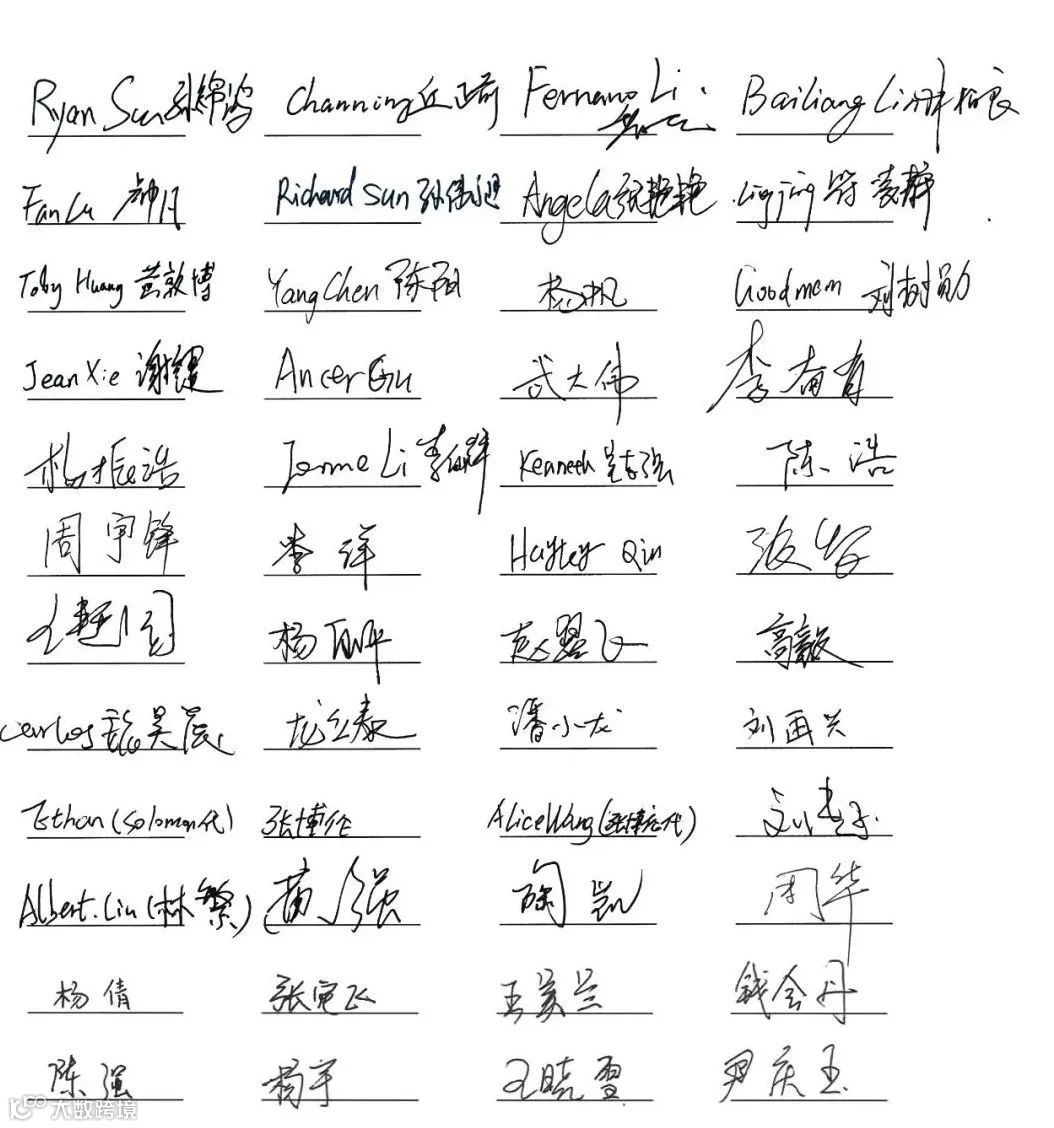 Ryan Sun 孙绵鸿 Channing 丘正奇 Fernano Li Bailiang Lin 林柏良
Fan Lu Richard Sun 孙伟进 Angela 张艳艳 Lingjing 符 凌静
Toby Huang 黄敦博 Yang Chen 陈阳 杨帆 Goodmem 刘树勋
Jean Xie 谢健 Ancer Gu 武大伟 李有有
杨振浩 Jerome Li 李 Kenneth 吴志强 陈浩
周宇锋 李祥 Hayley Qin 张
王 杨 赵翌飞 高毅
Carlos 魏昊晨 龙立泰 潘小龙 刘再兴
Ethan (Solomon代) 张博伦 Alice Wang (张博伦代) 刘
Albert.Lin (林繁) 黄 强 陶凯 周华
杨倩 张宽飞 王美兰 钱会丹
陈强 杨宇 王晓雪 尹庆玉
10 大数跨境